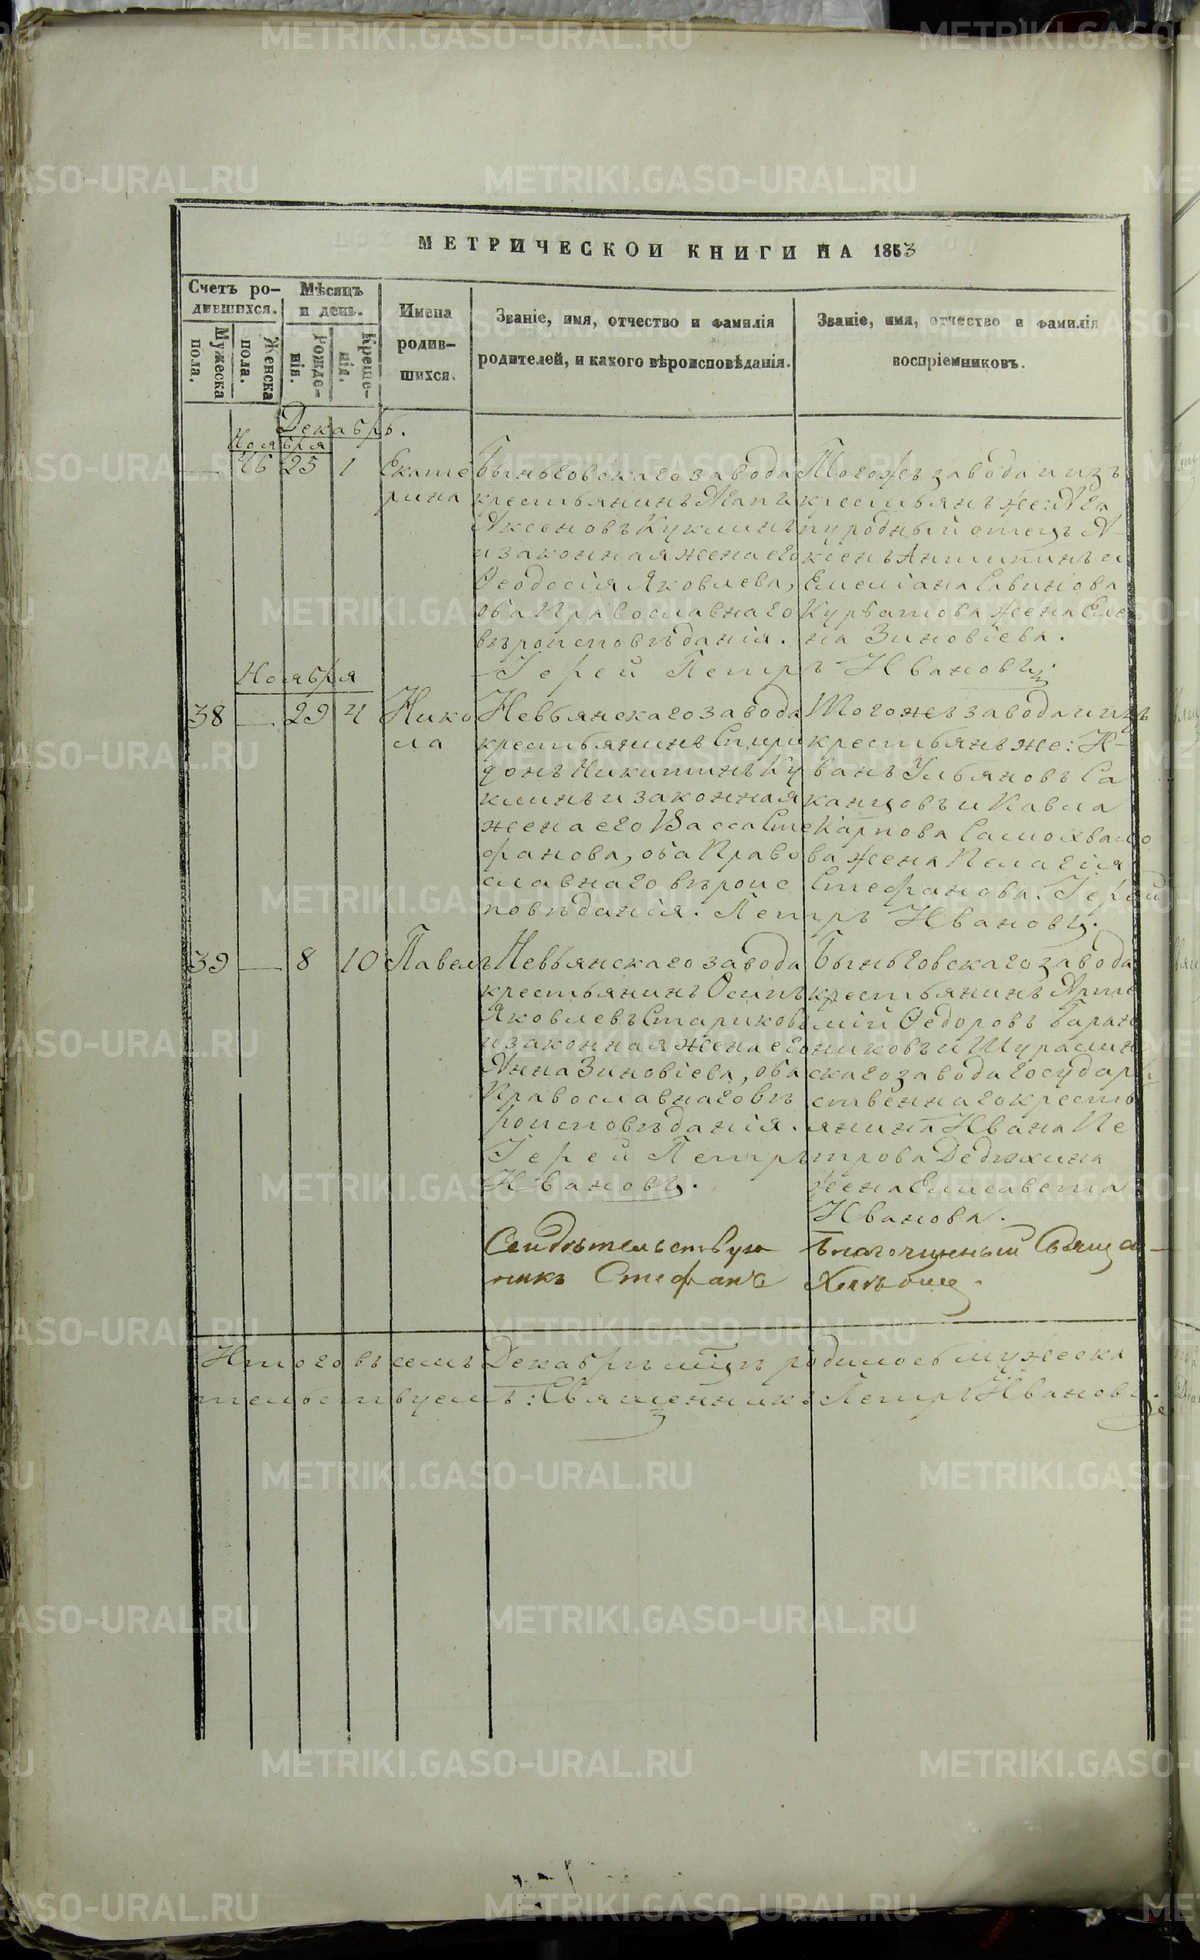 МЕТРИЧЕСКОЙ КНИГИ НА 1863
Счетъ ро-
дившихся.
Мужеска
пола.
Женска
пола.
Мѣсяцъ
и день.
Рожде-
нія.
Креще-
нія.
Имена
родив-
шихся.
Званіе, имя, отчество и фамилія
родителей, и какого вѣроисповѣданія.
Званіе, имя, отчество и фамилія
воспріемниковъ.
Декабрь.
Ноября
46 25 1
Екате
рина
Быньговскаго завода
крестьянинъ
Аксеновъ Куклинъ
и законная жена его
Ѳеодосія Яковлева,
оба Православнаго
вѣроисповѣданія.
Тогожъ завода и изъ
крестьянъ же:
родный отецъ А
ксенъ Антипинъ и
Емеліана Савинова
Курбатова жена Еле
на Зиновіева.
Іерей Петръ Ивановъ.
Ноября
38 — 29 4
Нико
ла
Невьянскаго завода
крестьянинъ Спири
донъ Никитинъ Ку
клинъ и законная
жена его Васса Сте
фанова, оба Право
славнаго вѣроис
повѣданія.
Тогоже завода и изъ
крестьянъ же: И-
ванъ Ульяновъ Са
канцовъ и Павла
Карпова Самойлова
жена Пелагія
Стефанова. Іерей
Петръ Ивановъ.
39 — 8 10
Павелъ
Невьянскаго завода
крестьянинъ Осипъ
Яковлевъ Стариковъ
и законная жена его
Анна Зиновіева, оба
Православнаго вѣ
роисповѣданія.
Іерей Петръ
Ивановъ.
Быньговскаго завода
крестьянинъ Арте
мій Ѳедоровъ Баран
никовъ и Шуралин
скаго завода государ
ственнаго кресть
янина Ивана Пе
трова Дедюхина
жена Елисавета
Иванова.
Свидѣтельствую Благочинный Свяще
никъ Стефанъ
Итого въ семъ Декабрѣ мцѣ родилось мужеска
тельствуемъ: Священникъ Петръ Ивановъ.
METRIKI.GASO-URAL.RU